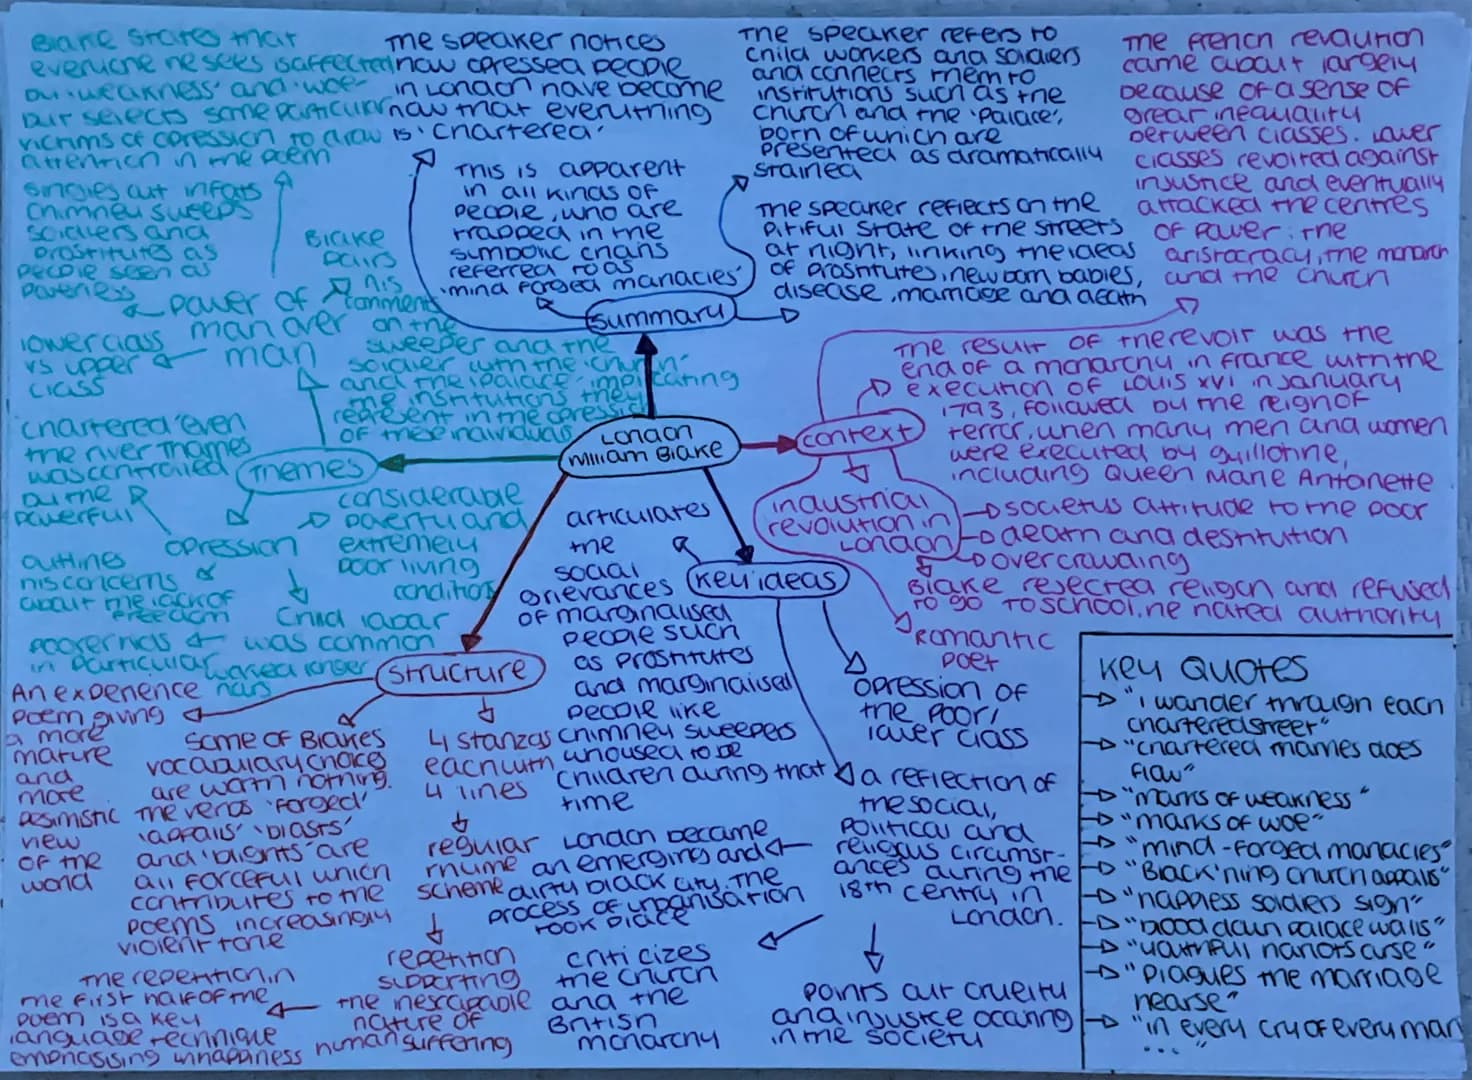 Blake states that
everyone he sees is affected
by 'weakness' and 'woe'
but selects some particular
victims of opression to draw
attention in the poem
singles out infats
chimney sweeps
soldiers and
prostitutes as
people seen as
powerless
power of
man over
man
lower class
vs upper
class
Blake
pairs
his
comments
on the
sweeper and the
soldier with the 'church'
and the 'palace' implicating
the institutions they
represent in the opression
of these individuals
'chartered' even
the river thames
was controlled
by the
powerful
Themes
opression
considerable
poverty and
extremely
poor living
conditions
outlines
his concerns
about the lack of
freedom
child labar
was common
poorer kids
in particular
worked longer
hours
The speaker notices
how opressed people
in London have become
now that everything
is 'chartered'
This is apparent
in all kinds of
people, who are
trapped in the
symbolic chains
referred to as
'mind forged manacles'
The speaker refers to
child workers and soldiers
and connects them to
institutions such as the
church and the 'palace',
both of which are
presented as dramatically
stained
The speaker reflects on the
pitiful state of the streets
at night, linking the ideas
of prostitutes, new born babies,
disease, marriage and death
summary
London
William Blake
The french revolution
came about largely
because of a sense of
great inequality
between classes. Lower
classes revolted against
injustice and eventually
attacked the centres
of power: the
aristocracy, the monarch
and the church
The result of the revolt was the
end of a monarchy in france with the
execution of Louis XVI in January
1793, followed by the reign of
terror, when many men and women
were executed by guillotine,
including Queen Marie Antonette
context
industrial
revolution in
London
societys attitude to the poor
death and destitution
overcrowding
Blake rejected religon and refused
to go to school. he hated authority
Romantic
poet
Key ideas
articulates
the
social
grievances
of marginalised
people such
as prostitutes
and marginalised
people like
chimney sweepers
who used to be
children during that
time
opression of
the poor/
lower class
a reflection of
the social,
political and
religous circumst-
ances during the
18th centry in
London.
London became
an emerging and
dirty black city. The
process of urbanisation
took place
criticizes
the church
and the
British
monarchy
points out cruelty
and injustice occuring
in the society
structure
An experience
poem giving
a more
mature
and
more
pesimistic
view
of the
world
some of Blakes
vocabulary choices
are worth noting.
The verbs 'forged'
'appalls' 'blasts'
and 'blights' are
all forceful which
contributes to the
poems increasingly
violent tone
4 stanzas
each with
4 lines
regular
rhyme
scheme
repetition
supporting
the inescapable
nature of
human suffering
The repetition in
the first half of the
poem is a key
language technique
emphasising unhappiness
Key Quotes
"i wander through each
chartered street"
"chartered thames does
flow"
"marks of weakness"
"marks of woe"
"mind-forged manacles"
"Black'ning church appalls"
"happless soldiers sigh"
"blood down palace walls"
"youthful harlots curse"
"plagues the marriage
hearse"
"in every cry of every man
..."